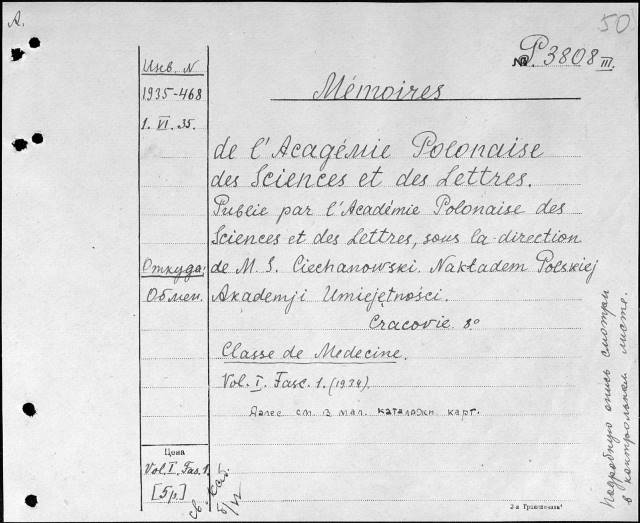 A.
50
№ P. 3808 III.
Инв. N
1935-468
1. VI. 35.
Mémoires
de l'Acagémie Polonaise
des Sciences et des Lettres.
Publie par l'Académie Polonaise des
Sciences et des Lettres, sous la direction
Откуда:
de M. S. Ciechanowski. Nakładem Polskiej
Обмен.
Akademji Umiejętności.
Cracovie. 8°
Classe de Medecine.
Vol. I. Fasc. 1. (1924).
Далее см. в мал. каталожн. карт.
Цена
Vol. I. Fas. 1.
[5 р.]
Подробную опись смотри
в контрольном листе.